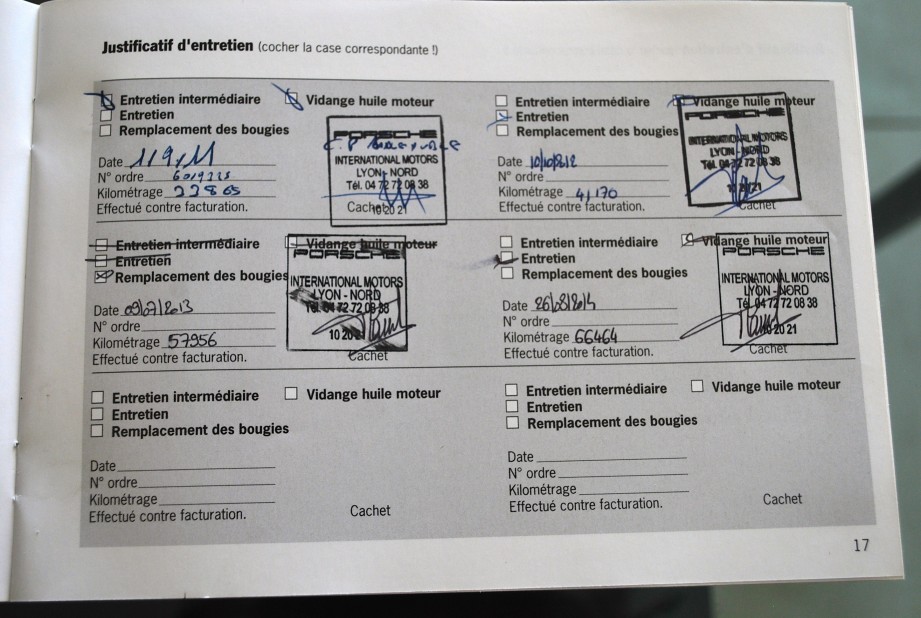 Justificatif d'entretien (cocher la case correspondante !)
Entretien intermédiaire Vidange huile moteur
Entretien
Remplacement des bougies
Date 1/9/11
N° ordre
Kilométrage 22865
Effectué contre facturation.
PORSCHE
INTERNATIONAL MOTORS
LYON - NORD
Tél. 04 72 72 08 38
10 20 21
Cachet
Entretien intermédiaire Vidange huile moteur
Entretien
Remplacement des bougies
Date 10/10/2012
N° ordre
Kilométrage 41170
Effectué contre facturation.
PORSCHE
INTERNATIONAL MOTORS
LYON - NORD
Tél. 04 72 72 08 38
10 20 21
Cachet
Entretien intermédiaire Vidange huile moteur
Entretien
Remplacement des bougies
Date 09/07/2013
N° ordre
Kilométrage 57956
Effectué contre facturation.
PORSCHE
INTERNATIONAL MOTORS
LYON - NORD
Tél. 04 72 72 08 38
10 20 21
Cachet
Entretien intermédiaire Vidange huile moteur
Entretien
Remplacement des bougies
Date 26/08/2014
N° ordre
Kilométrage 66464
Effectué contre facturation.
PORSCHE
INTERNATIONAL MOTORS
LYON - NORD
Tél. 04 72 72 08 38
10 20 21
Cachet
Entretien intermédiaire Vidange huile moteur
Entretien
Remplacement des bougies
Date
N° ordre
Kilométrage
Effectué contre facturation.
Cachet
Entretien intermédiaire Vidange huile moteur
Entretien
Remplacement des bougies
Date
N° ordre
Kilométrage
Effectué contre facturation.
Cachet
17